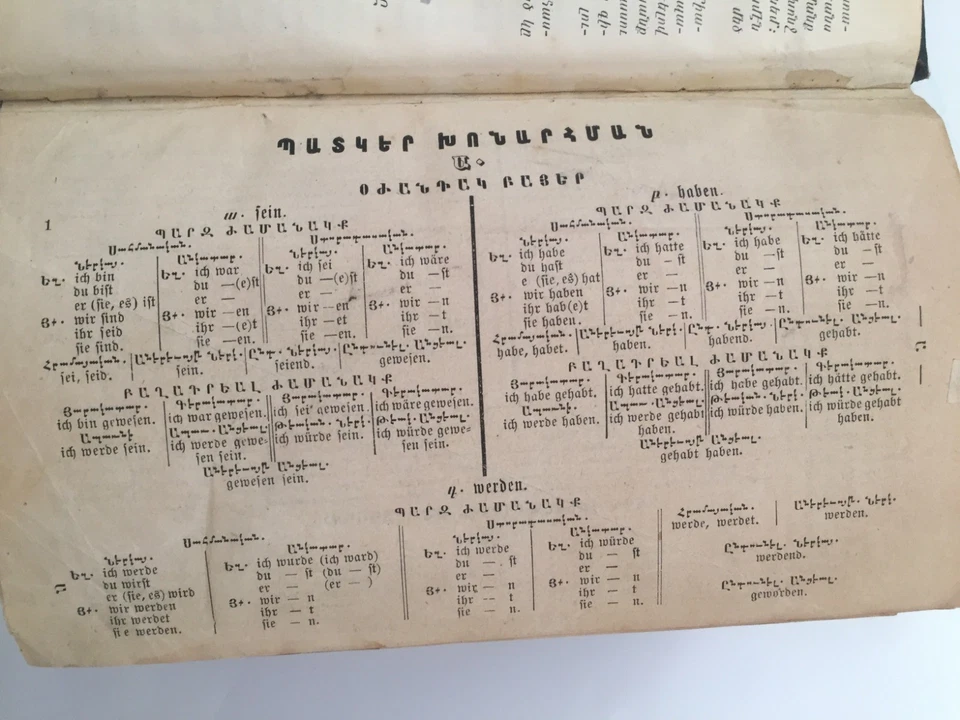 ՊԱՏԿԵՐ ԽՈՆԱՐՀՄԱՆ
Ա.
ՕԺԱՆԴԱԿ ԲԱՅԵՐ
1
ա. sein.
ՊԱՐԶ ԺԱՄԱՆԱԿՔ
Սահմանական.
Ստորադասական.
Ներկայ.
Եզ. ich bin
du bist
er (sie, es) ist
Յգ. wir sind
ihr seid
sie sind.
Անկատար.
Եզ. ich war
du —(e)st
er —
Յգ. wir —en
ihr —(e)t
sie —en.
Ներկայ.
Եզ. ich sei
du —(e)st
er —
Յգ. wir —en
ihr —et
sie —en.
Անկատար.
Եզ. ich wäre
du —st
er —
Յգ. wir —n
ihr —t
sie —n.
Հրամայական.
sei, seid.
Աներևոյթ Ներկ.
sein.
Ընդ. Ներկայ.
seiend.
Ընդունել. Անցեալ.
gewesen.
ԲԱՂԱԴՐԵԱԼ ԺԱՄԱՆԱԿՔ
Յարակատար.
ich bin gewesen.
Գերակատար.
ich war gewesen.
Յարակատար.
ich sei gewesen.
Գերակատար.
ich wäre gewesen.
Ապառնի
ich werde sein.
Ապառ. Անցեալ.
ich werde gewe-
sen sein.
Թէական. Ներկ.
ich würde sein.
Թէակ. Անցեալ.
ich würde gewe-
sen sein.
Աներևոյթ Անցեալ.
gewesen sein.
բ. haben.
ՊԱՐԶ ԺԱՄԱՆԱԿՔ
Սահմանական.
Ստորադասական.
Ներկայ.
Եզ. ich habe
du hast
e (sie, es) hat
Յգ. wir haben
ihr hab(e)t
sie haben.
Անկատար.
Եզ. ich hatte
du —st
er —
Յգ. wir —n
ihr —t
sie —n.
Ներկայ.
Եզ. ich habe
du —st
er —
Յգ. wir —n
ihr —t
sie —n.
Անկատար.
Եզ. ich hätte
du —st
er —
Յգ. wir —n
ihr —t
sie —n.
Հրամայական.
habe, habet.
Աներևոյթ Ներկ.
haben.
Ընդ. Ներկայ.
habend.
Ընդունել. Անցեալ.
gehabt.
ԲԱՂԱԴՐԵԱԼ ԺԱՄԱՆԱԿՔ
Յարակատար.
ich habe gehabt.
Գերակատար.
ich hatte gehabt.
Յարակատար.
ich habe gehabt.
Գերակատար.
ich hätte gehabt.
Ապառնի.
ich werde haben.
Ապառ. Անցեալ.
ich werde gehabt
haben.
Թէական. Ներկ.
ich würde haben.
Թէակ. Անցեալ.
ich würde gehabt
haben.
Աներևոյթ Անցեալ.
gehabt haben.
գ. werden.
ՊԱՐԶ ԺԱՄԱՆԱԿՔ
Սահմանական.
Ստորադասական.
Ներկայ.
Եզ. ich werde
du wirst
er (sie, es) wird
Յգ. wir werden
ihr werdet
sie werden.
Անկատար.
Եզ. ich wurde (ich ward)
du — st (du — st)
er — (er — )
Յգ. wir — n
ihr — t
sie — n.
Ներկայ.
Եզ. ich werde
du — st
er —
Յգ. wir — n
ihr — t
sie — n.
Անկատար.
Եզ. ich würde
du — st
er —
Յգ. wir — n
ihr — t
sie — n.
Հրամայական.
werde, werdet.
Աներևոյթ. Ներկ.
werden.
Ընդունել. Ներկայ.
werdend.
Ընդունել. Անցեալ.
geworden.